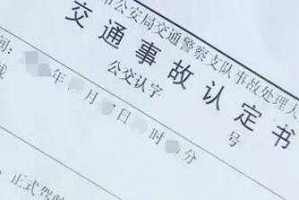 市公安局交通警察支队事故处理大
交通事故认定书
公交认字 号
间: 年 月 日 时 分
线
正式驾